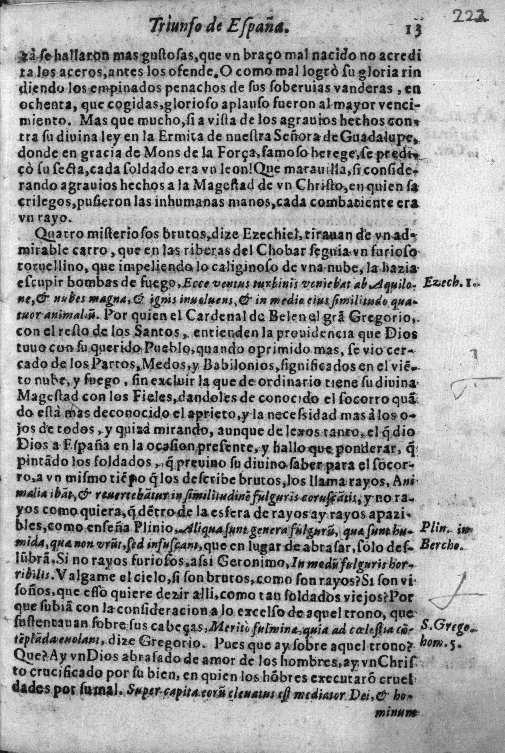 222
Triunfo de España. 13
rà se hallaron mas gustosas, que vn braço mal nacido no acredi
ta los aceros, antes los ofende. O como mal logrò su gloria rin
diendo los empinados penachos de sus soberuias vanderas, en
ochenta, que cogidas, glorioso aplauso fueron al mayor venci-
miento. Mas que mucho, si a vista de los agrauios hechos con-
tra su diuina ley en la Ermita de nuestra Señora de Guadalupe,
donde en gracia de Mons de la Força, famoso herege, se predi-
cò su secta, cada soldado era vn leon! Que marauilla, si conside-
rando agrauios hechos a la Magestad de vn Christo, en quien sa
crilegos, pusieron las inhumanas manos, cada combatiente era
vn rayo.
Quatro misteriosos brutos, dize Ezechiel, tirauan de vn ad-
mirable carro, que en las riberas del Chobar seguia vn furioso
toruellino, que impeliendo lo caliginoso de vna nube, la hazia
escupir bombas de fuego, Ecce ventus turbinis veniebat ab Aquilo-
ne, & nubes magna, & ignis inuoluens, & in medio eius similitudo qua-
tuor animaliũ. Por quien el Cardenal de Belen el grã Gregorio,
con el resto de los Santos, entienden la prouidencia que Dios
tuuo con su querido Pueblo, quando oprimido mas, se vio cer-
cado de los Partos, Medos, y Babilonios, significados en el viẽ-
to nube, y fuego, sin excluir la que de ordinario tiene su diuina
Magestad con los Fieles, dandoles de conocido el socorro quã
do està mas deconocido el aprieto, y la necessidad mas à los o-
jos de todos, y quizà mirando, aunque de lexos tanto, el q̃ dio
Dios a España en la ocasion presente, y hallo que ponderar, q̃
pintãdo los soldados, q̃ preuino su diuino saber para el socor-
ro, a vn mismo tiẽpo q̃ los describe brutos, los llama rayos, Ani
malia ibãt, & reuertebãtur in similitudinẽ fulguris coruscãtis, y no ra-
yos como quiera, q̃ dẽtro de la esfera de rayos ay rayos apazi-
bles, como enseña Plinio, Aliqua sunt genera fulgurũ, quæ sunt hu-
mida, quæ non vrũt, sed infuscant, que en lugar de abrasar, solo des-
lũbrã. Si no rayos furiosos, assi Geronimo, In medũ fulguris hor-
ribilis. Valgame el cielo, si son brutos, como son rayos? Si son vi
soños, que esso quiere dezir alli, como tan soldados viejos? Por
que subiã con la consideracion a lo excelso de aquel trono, que
sustentauan sobre sus cabeças, Merito fulmina, quia ad cœlestia cõ-
tẽplãda euolant, dize Gregorio. Pues que ay sobre aquel trono?
Que? Ay vn Dios abrasado de amor de los hombres, ay vn Chris
to crucificado por su bien, en quien los hõbres executarõ cruel
dades por su mal. Super capita eorũ eleuatus est mediator Dei, & ho-
minum
Ezech. 1.
Plin. in
Bercho.
S. Grego.
hom. 5.